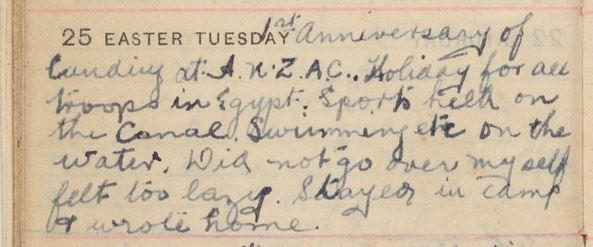 25 EASTER TUESDAY 1st Anniversary of
Landing at A.N.Z.A.C.. Holiday for all
troops in Egypt. Sports held on
the Canal. Swimming etc on the
water. Did not go over myself
felt too lazy. Stayed in camp
& wrote home.